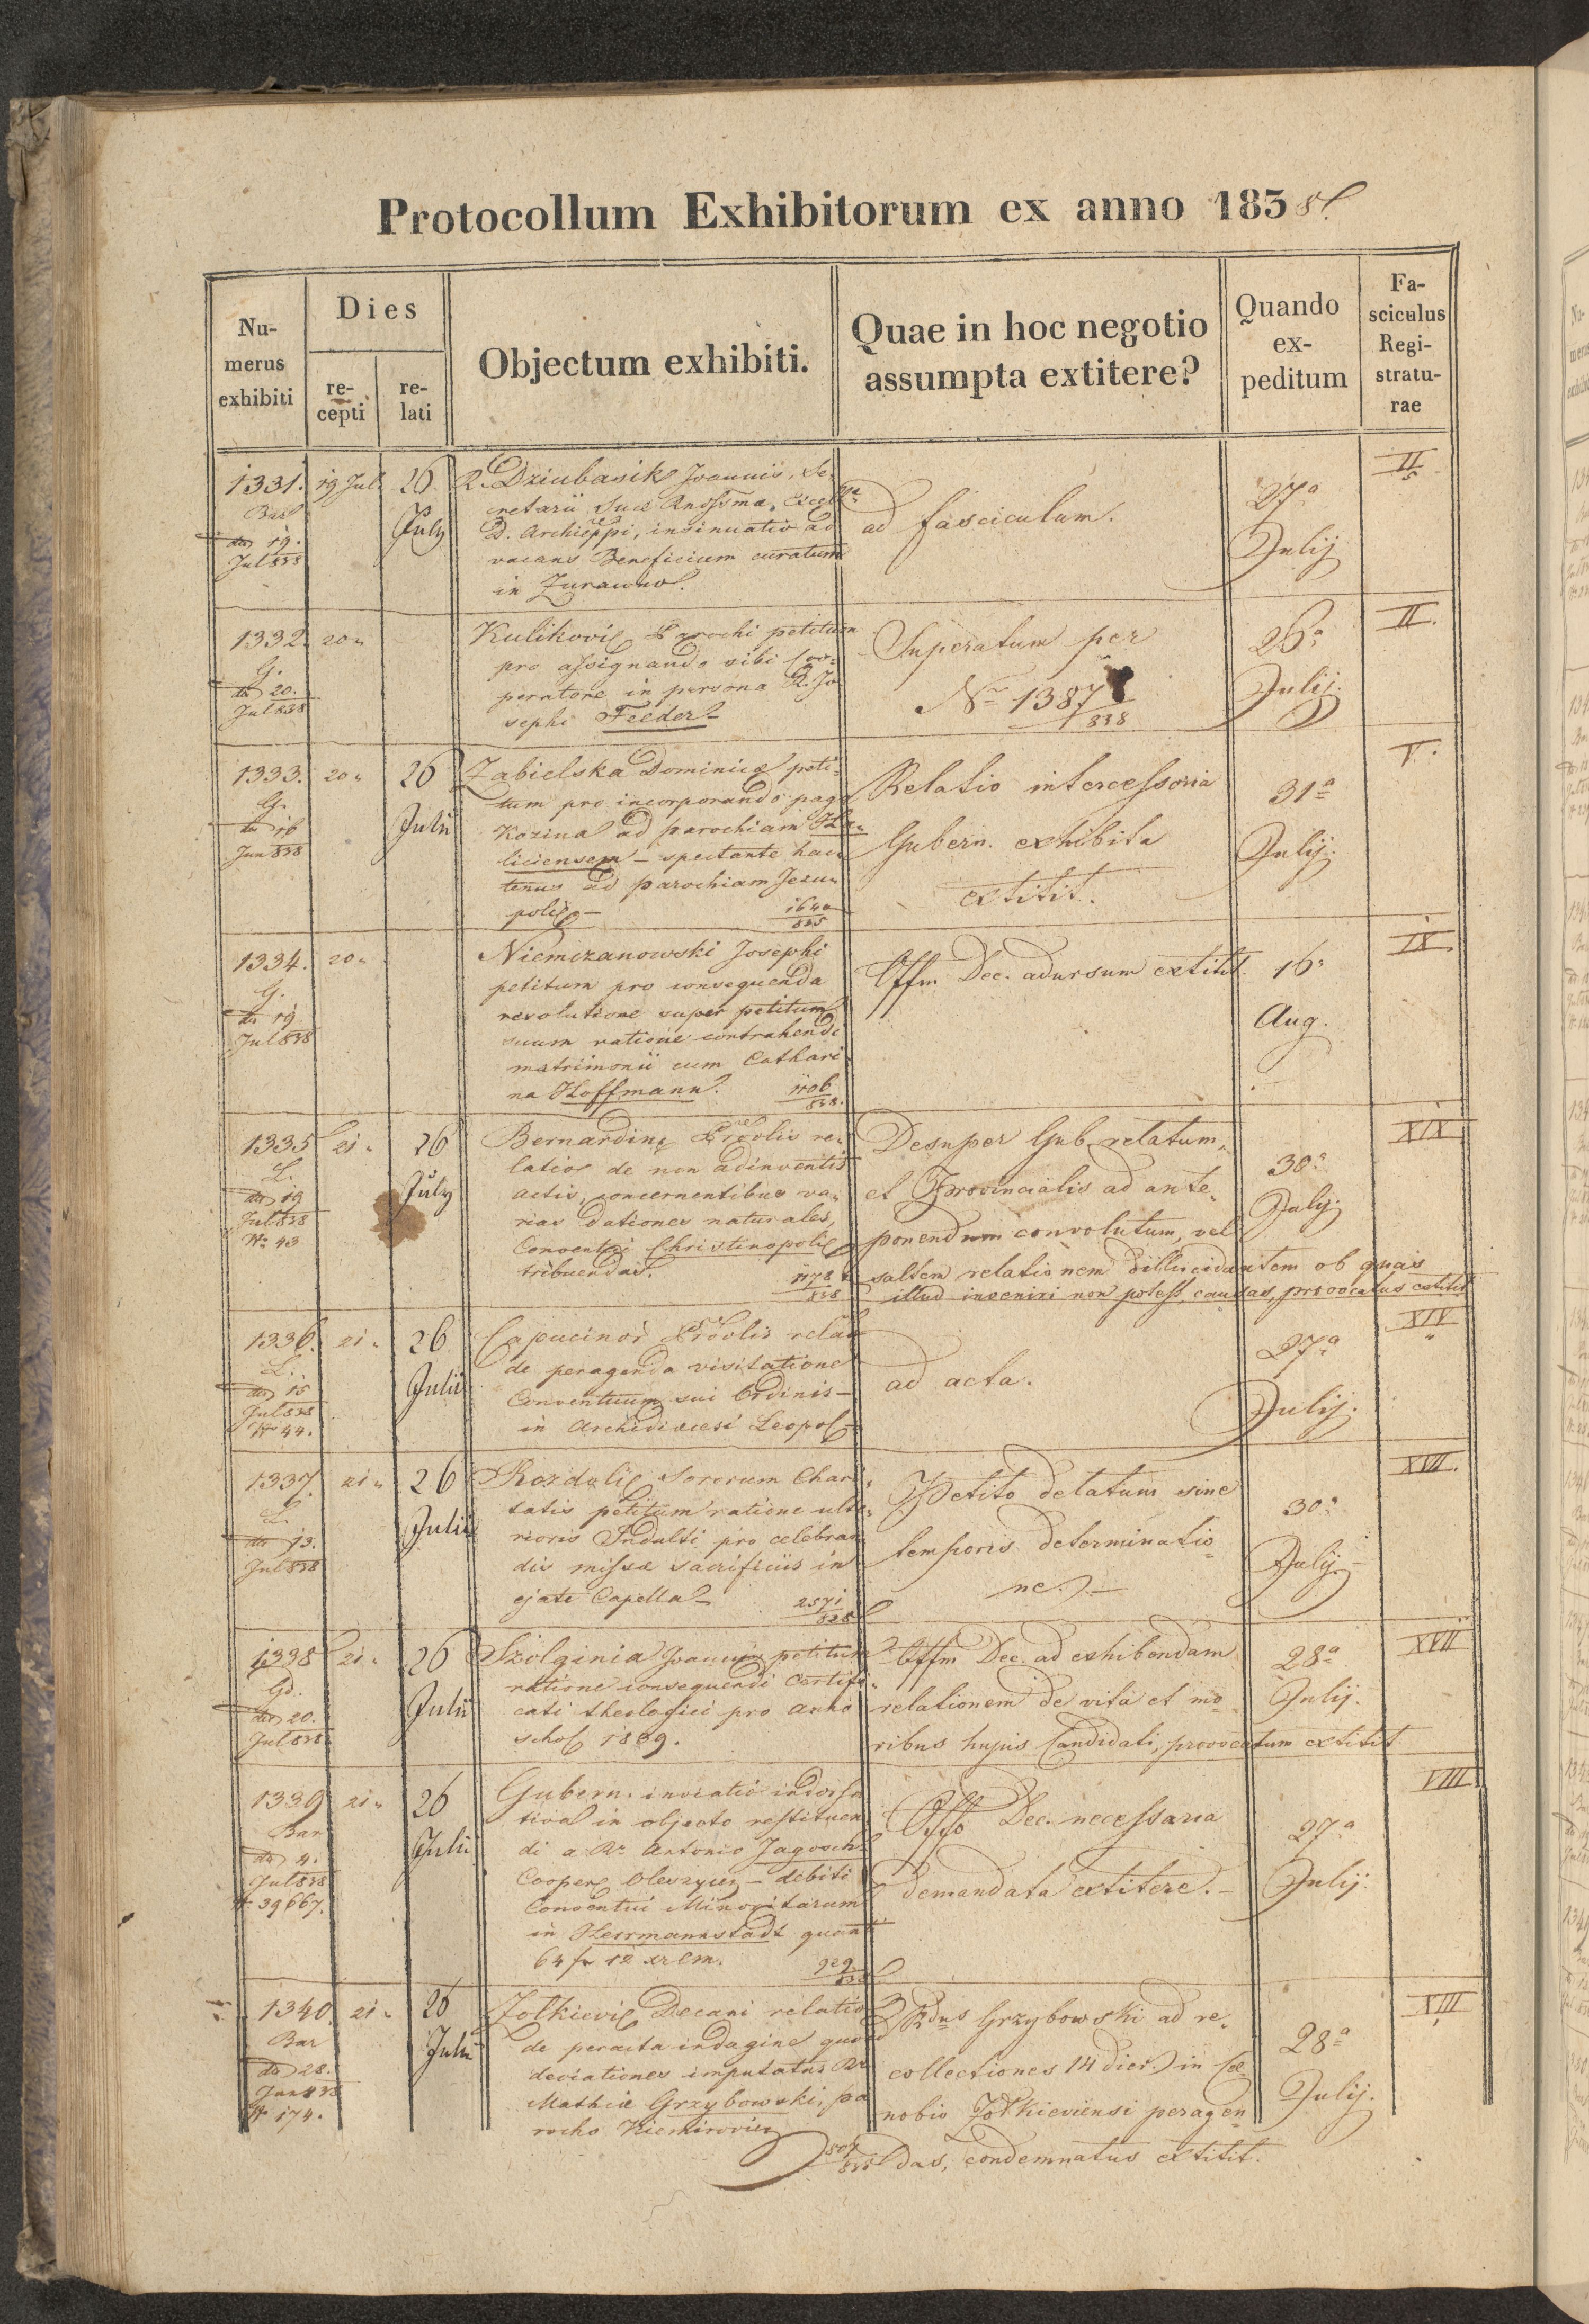 Protocollum Exhibitorum ex anno 1838.
Numerus exhibiti
Dies
recepti
relati
Objectum exhibiti.
Quae in hoc negotio assumpta extitere?
Quando expeditum
Fasciculus Registraturae
1331. 19 Jul. 26 July
19. Jul 838
R. Dziubasik Joannis, Se-
cretarii Suae
D. Archieppi, insinuatio ad
vacans Beneficium curatum
in Zurawno.
ad fasciculum.
27a Julij
II
1332. 20 "
G.
20. Jul 838
Kulikovi Parochi petitum
pro assignando sibi Coo-
peratore in persona R. Jo
sephi Feeder
Superatum per
No 1387
838
26a Julij.
II.
1333. 20 " 26 Julii
G.
16 Jun 838
Zabielska Dominicae peti-
tum pro incorporando pago
Kozina ad parochiam Ha-
liciensem – spectante hac-
tenus ad parochiam Jezu-
polis –
1640
835
Relatio intercessoria
Gubern. exhibita
extitit.
31a Julij.
V.
1334. 20 "
G.
19. Jul 838
Niemizanowski Josephi
petitum pro consequenda
resolutione super petitum
suum ratione contrahendi
matrimonii cum Cathari
na Hoffmann.
1106
838.
Offm Dec. adursum extitit.
16a Aug.
IX
1335 21 " 26 July
L.
19 Jul 838
No 43
Bernardin Provlis re-
latio de non adinventis
actis, concernentibus va-
rias dationes naturales,
Conventui Christinopoli
tribuendas.
1178
838
Desuper Gub. relatum,
et Provincialis ad ante-
ponendum convolutum, vel
saltem relationem dillucidantem ob quas
illud inveniri non potest, causas, provocatus extitit
30a July
XIX
1336. 21 " 26 Julii
L.
15 Jul 838
No 44.
Capucinor Provlis relat
de peragenda visitatione
Conventuum sui Ordinis –
in Archidioecesi Leopol
ad acta.
27a Julij.
XIV
1337. 21 " 26 Julii
L.
13. Jul 838
Rozdoli Sororum Chari-
tatis petitum ratione ulte-
rioris Indulti pro celebran
dis missae sacrificiis in
ejate Capella –
2571
828
Petito delatum sine
temporis determinatio-
ne. –
30a Julij. –
XVII.
1338 21 " 26 Julii
Gd.
20. Jul 838
Szolginia Joannis petitum
ratione consequendi Certifi-
cati theologici pro anno
schol 1839.
Offm Dec. ad exhibendam
relationem de vita et mo-
ribus hujus Candidati, provocatum extitit
28a Julij.
XVII
1339 21 " 26 Julii
Bar
4. Jul 838
No 39667.
Gubern. invocatio indorsa
tival in objecto restituen
di a R. Antonio Jagosch
Cooper Oleszyc – debiti
Conventui Minoritarum
in Herrmannstadt quant
64 fr 12 xr Cm.
929
838
Offo Dec. necessaria
demandata extitere. –
27a Julij.
VIII
1340 21 " 26 Julii
Bar
28. Jun 838
No 174.
Zolkievi Decani relatio
de peracta indagine quo
deviationes imputatas R.
Mathiae Grzybowski, pa
rocho Niemirovien
507
838
Rdus Grzybowski ad re-
collectiones 14 dier. in Cae
nobio Zolkieviensi peragen-
das, condemnatus extitit.
28a Julij.
XIII